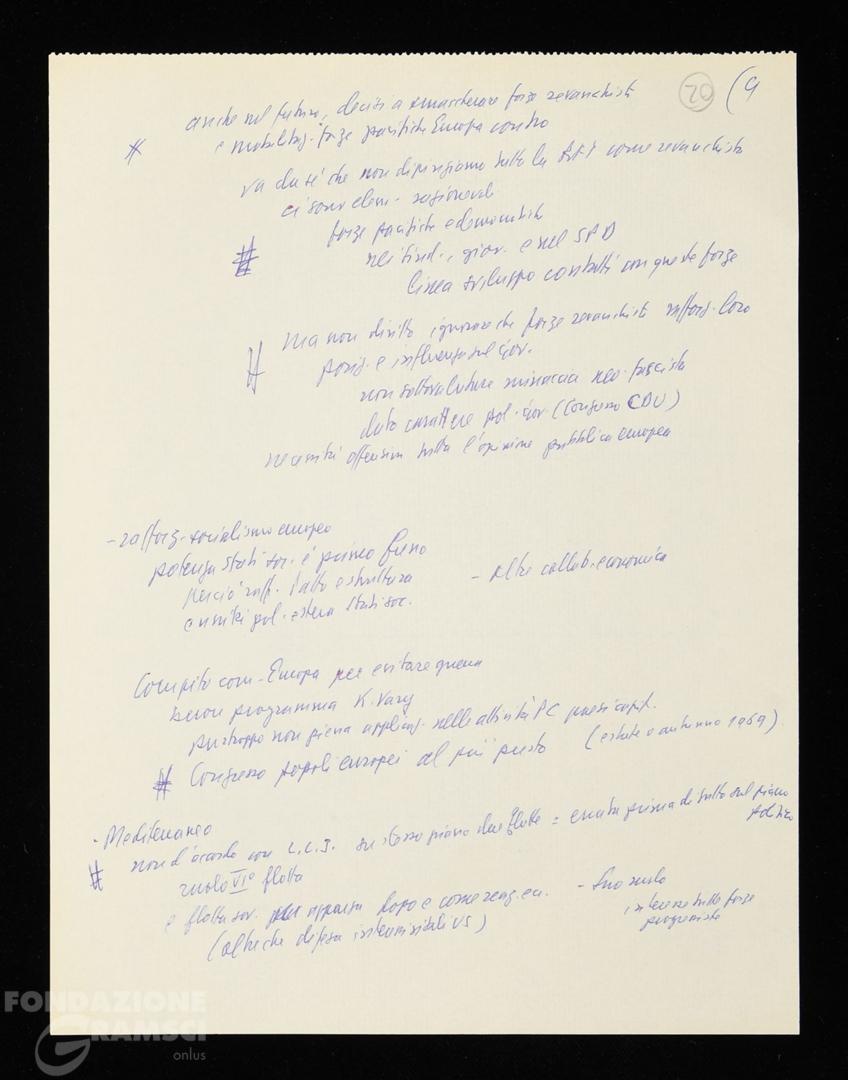 20 (9
anche nel futuro, decisi a smascherare forze revanchiste
e mobilitaz. forze pacifiche Europa contro
va da sé che non dipingiamo tutta la RFT come revanchista
ci sono elem. ragionevoli
forze pacifiche e democratiche
nei sind., giov. e nel SPD
linea sviluppo contatti con queste forze
ma non diritto ignorare che forze revanchiste rafforz. loro
posiz. e influenza sul gov.
non sottovalutare minaccia neo-fascista
dato carattere pol. gov. (Congresso CDU)
necessità offensiva tutta l'opinione pubblica europea
- rafforz. socialismo europeo
potenza stati soc. è primo freno
perciò raff. patto e struttura
e unità pol. estera stati soc.
- Altre collab. economica
Compito com. Europa per evitare guerra
buon programma K. Vary
purtroppo non piena applicaz. nelle attività PC paesi capit.
Congresso popoli europei al più presto (estate o autunno 1969).
- Mediterraneo
non d'accordo con L.L. su stesso piano due flotte = errata prima di tutto sul piano
politico
ruolo VIº flotta
e flotta sov. apparsa dopo e come reaz. ecc.
(altre che difesa interessi vitali US)
- Suo ruolo
interesse tutte forze
progressiste
FONDAZIONE
GRAMSCI
onlus